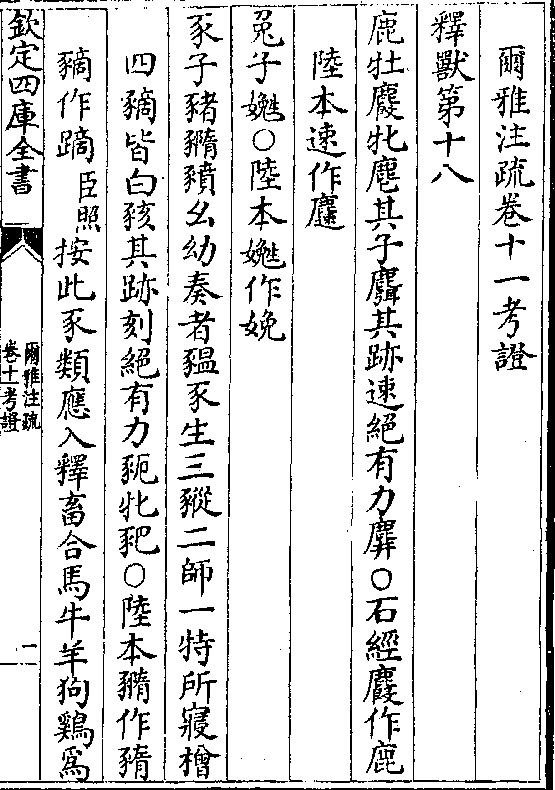 爾雅注疏卷十一考證
釋獸第十八
鹿牡麚牝麀其子麛其跡速絕有力麉○石經麚作鹿
陸本速作䴪
兔子嬎○陸本嬎作娩
豕子豬豶幺幼奏者豱豕生三豵二師一特所寢橧
四豴皆白豥其跡刻絕有力豟牝豝○陸本作
豴作蹢臣照按此豕類應入釋畜合馬牛羊狗鷄爲
欽定四庫全書
爾雅注疏
卷十一考證
一